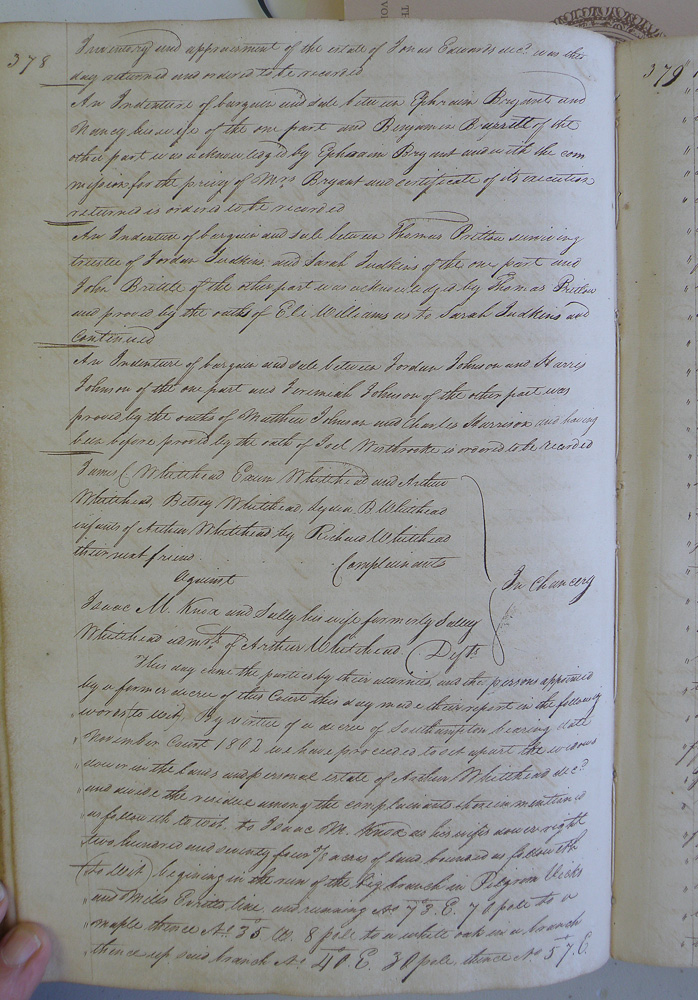 378
Inventory and appraisment of the estate of Jonas Edwards decd. was this
day returned and ordered to be recorded
An Indenture of bargain and sale between Ephraim Bryant and
Nancy his wife of the one part and Benjamin Barrett of the
other part was acknowledged by Ephraim Bryant and with the com
mission for the privy of Mrs Bryant and certificate of its execution
returned is ordered to be recorded
An Indenture of bargain and sale between Thomas Pretlow surviving
trustee of Jordan Judkins and Sarah Judkins of the one part and
John Brittle of the other part was acknowledged by Thomas Pretlow
and proved by the oaths of Eli Williams as to Sarah Judkins and
continued
An Indenture of bargain and sale between Jordan Johnson and Harris
Johnson of the one part and Jeremiah Johnson of the other part was
proved by the oaths of Matthew Johnson and Charles Harrison and having
been before proved by the oath of Joel Westbrooke is ordered to be recorded
James Whitehead Whitehead and Arthur
Whitehead, Betsey Whitehead, B. Whitehead
infants of Arthur Whitehead by Richard Whitehead
their next friend Complainants
against
In Chancery
Isaac M. Knox and Sally his wife formerly Salley
Whitehead admrx. of Arthur Whitehead Defts.
This day came the parties by their attornies and the persons appointed
by a former decree of this Court this day made their report in the following
words to wit, By virtue of a decree of Southampton bearing date
" November Court 1802 we have proceeded to set apart the widows
" dower in the lands and personal estate of Arthur Whitehead decd.
" and divide the residue among the complainants therein mentioned
" as followeth to wit. to Isaac M. Knox as his wifes dower right
" two hundred and seventy four acres of land bounded as followeth
(to wit) begining in the run of the big branch in Pilgrom Vicks
" and Miles line and running No. 73. E. 76 pole to a
" maple thence No. 35 W. 8 pole to a white oak in a branch
" thence up said branch No. 40 E. 30 pole thence No 57. E.
379